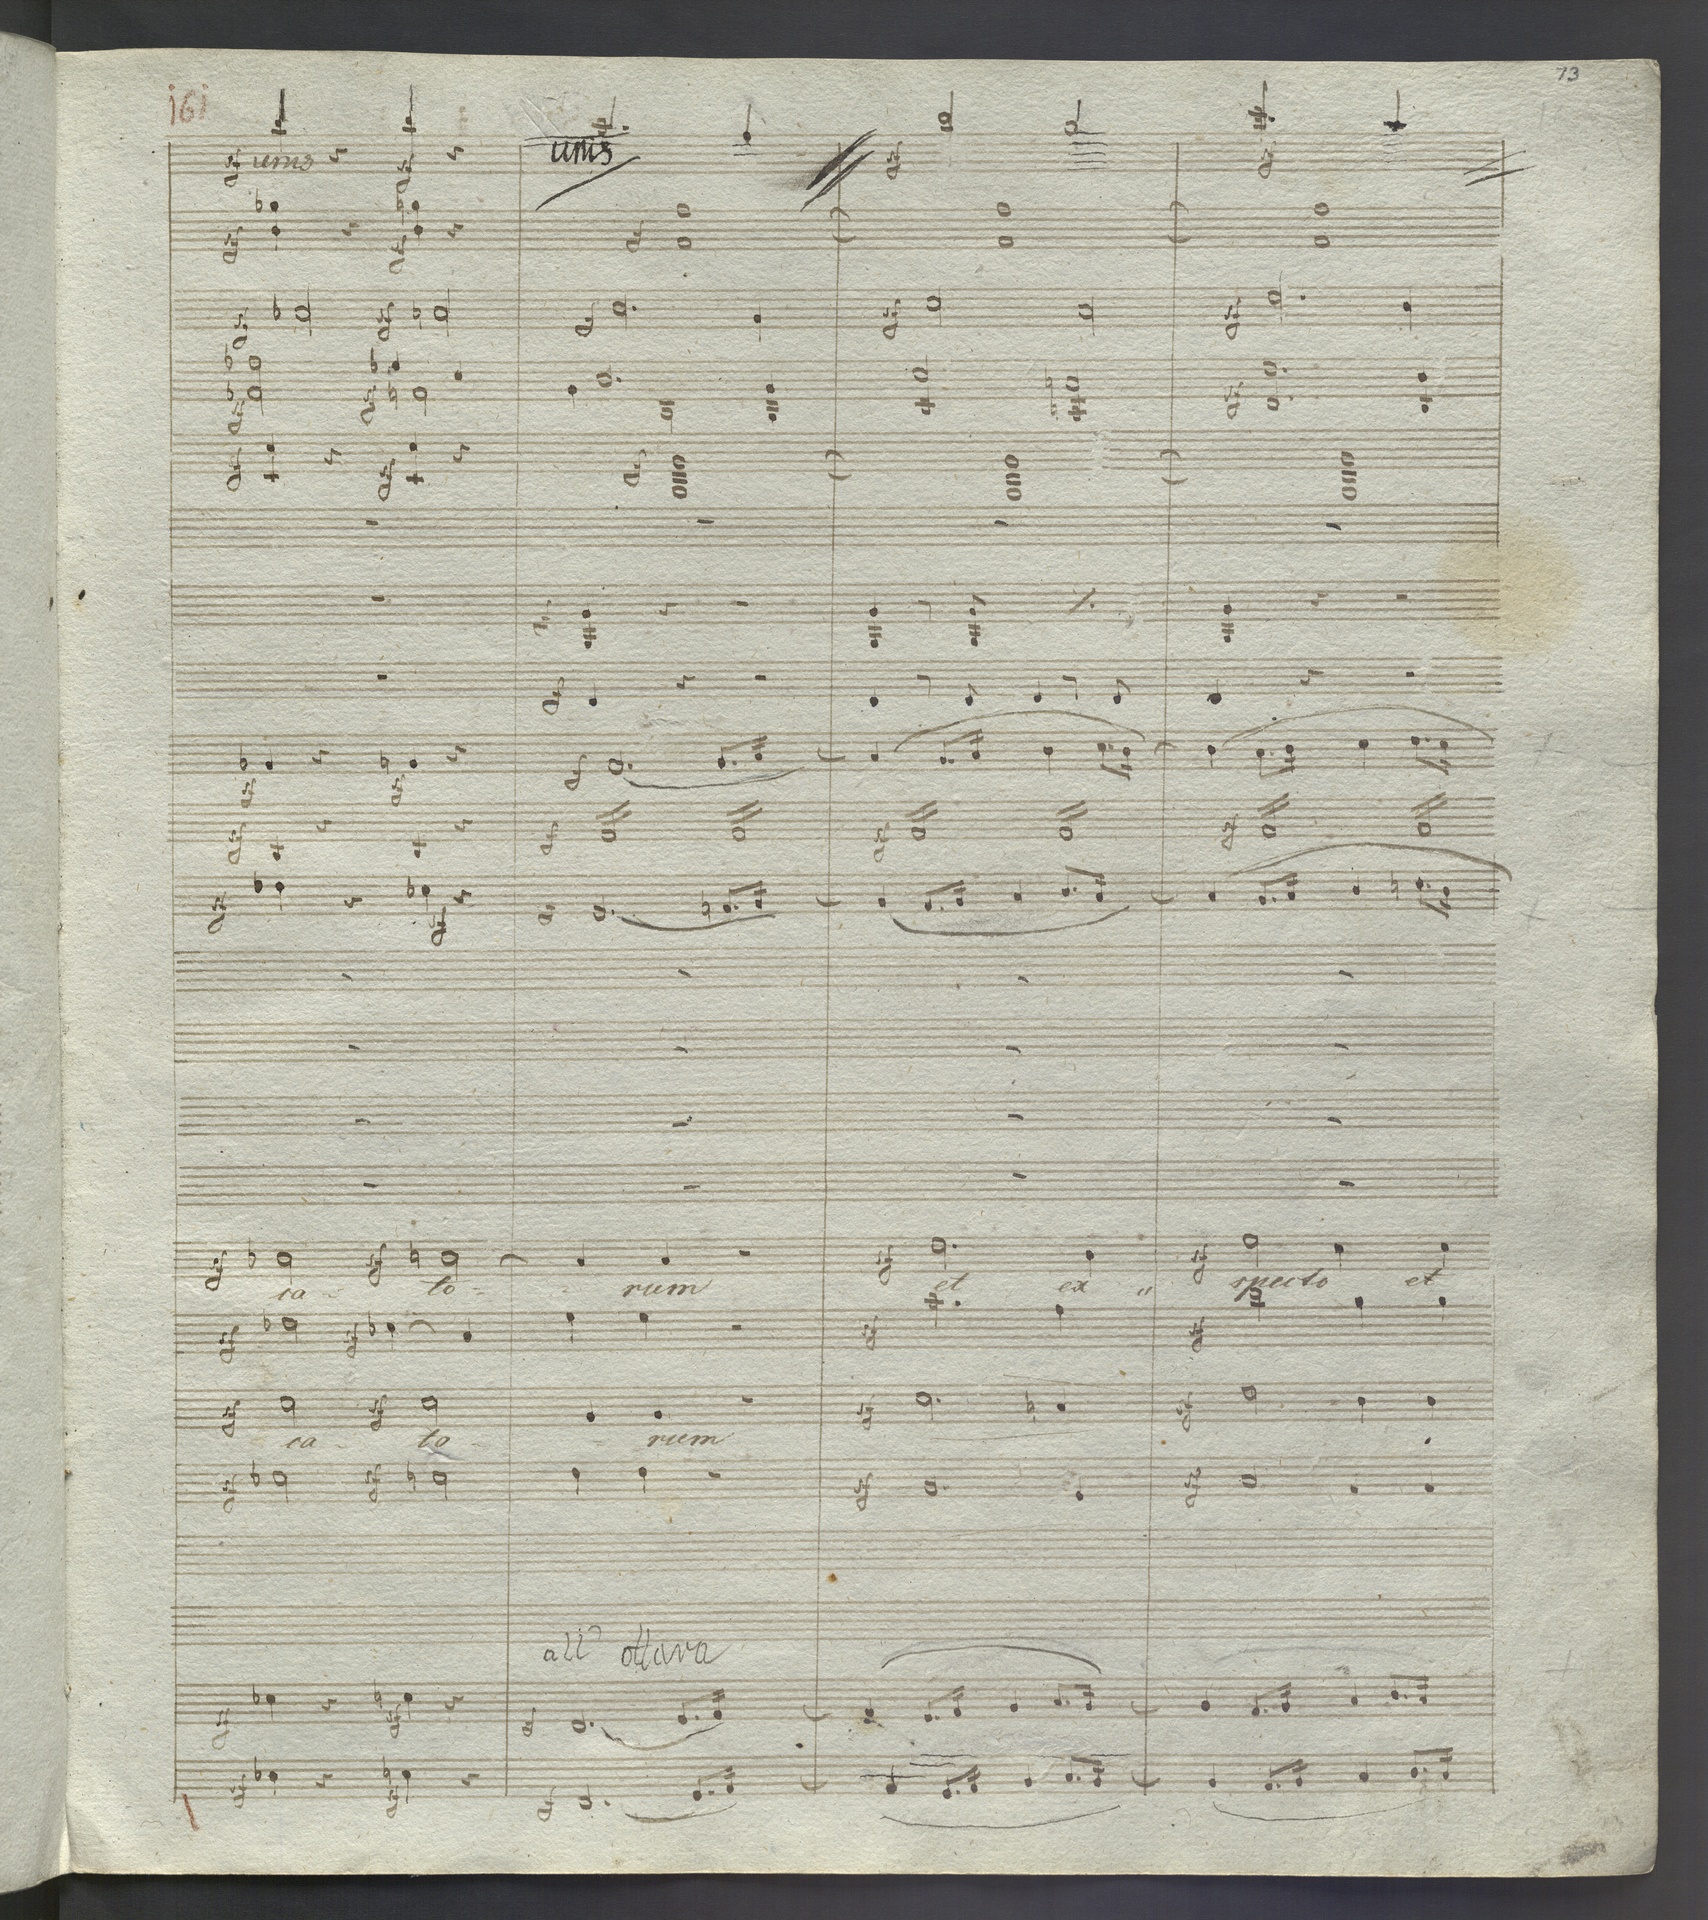 73
161
unis unis
ca - to - - rum et ex " specto et
ca - to - - rum
all' ottava